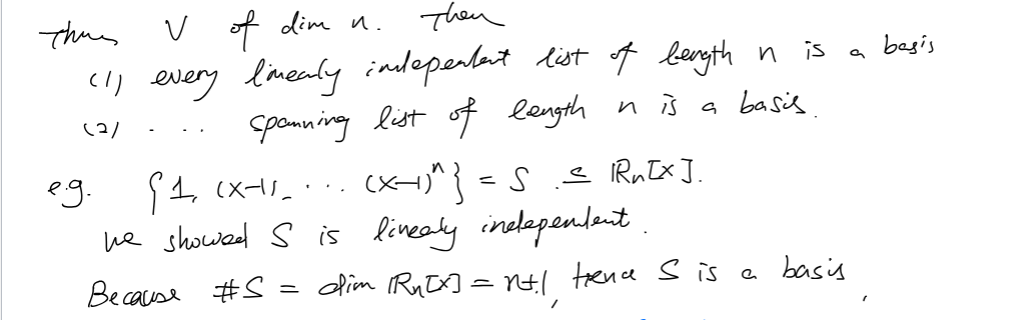 Thm V of dim n. Then
(1) every linearly independent list of length n is a basis
(2) . . . . spanning list of length n is a basis.
e.g. {1, (x-1), . . . (x-1)ⁿ} = S ⊆ ℝₙ[x].
we showed S is linearly independent.
Because #S = dim ℝₙ[x] = n+1, hence S is a basis,